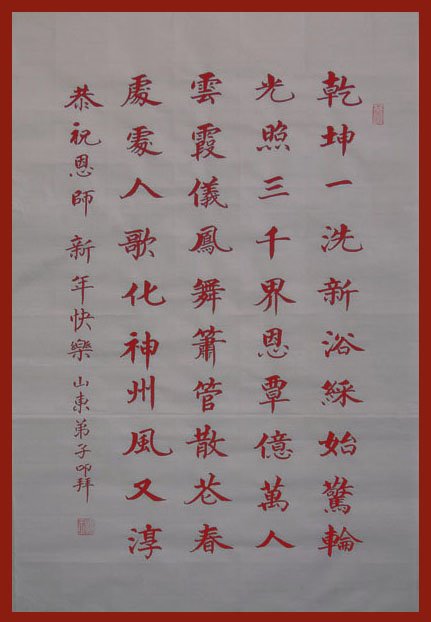 乾坤一洗新浴綵始驚輪
光照三千界恩覃億萬人
雲霞儀鳳舞簫管散芲春
處處人歌化神州風又淳
恭祝恩師 新年快樂 山東弟子叩拜